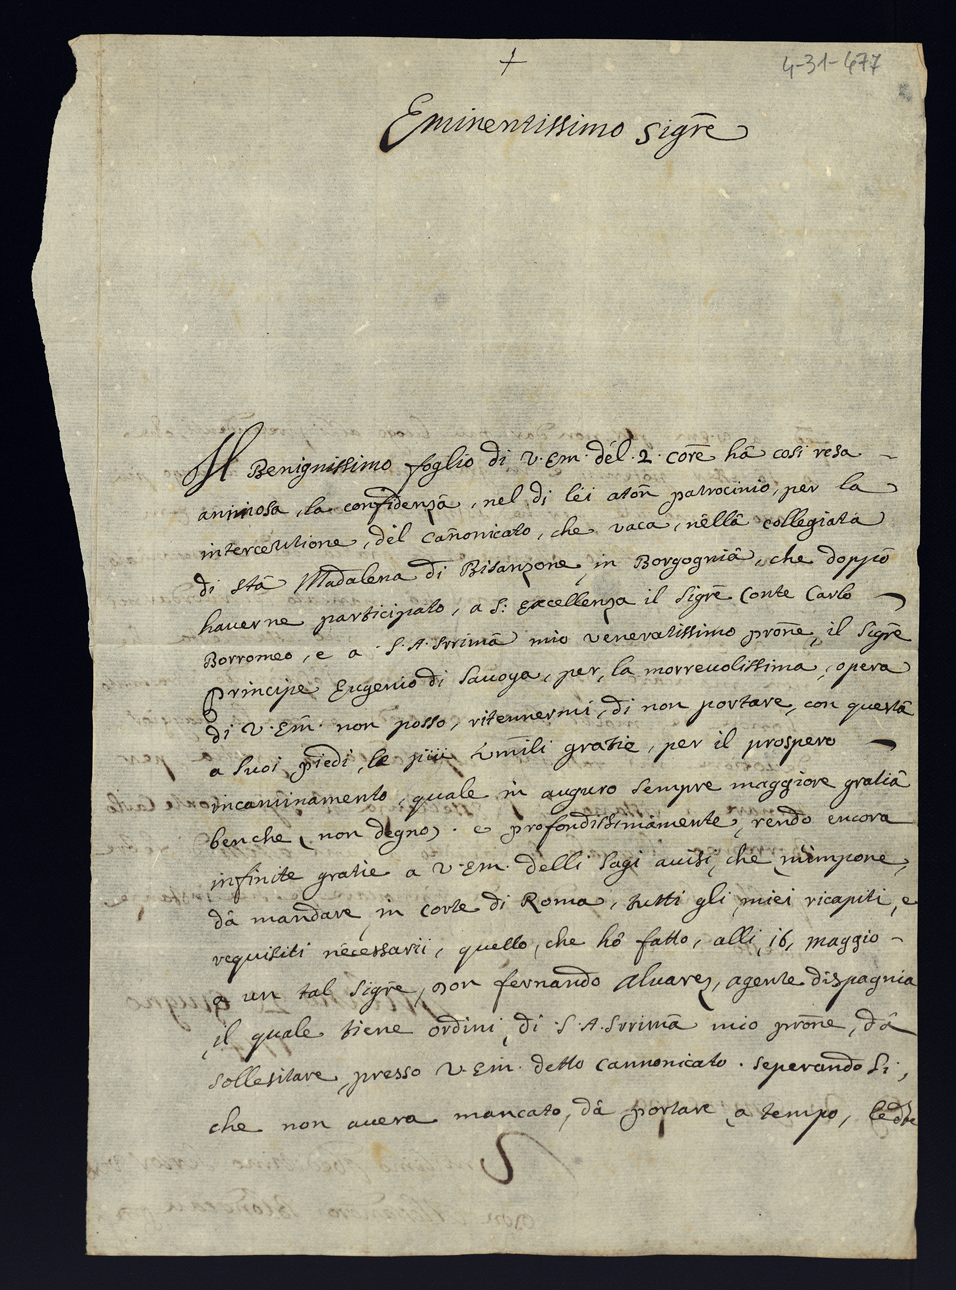 4-31-477
+
Eminentissimo Sigre
Il Benignissimo foglio di V. Em. del. 2. Core hà così resa
animosa, la confidenza, nel di lei aton patrocinio, per la
intercettione, del cannonicato, che vaca, nella collegiata
di Sta Madalena di Bisanzone, in Borgognia, che doppò
haverne participato, a S: Excellenza il Sigre Conte Carlo
Borromeo, e a S. A. Srrimà mio veneratissimo prone, il Sigre
Principe Eugenio di Savoya, per, la morrevolissima, opera
di V. Em. non posso, ritennermi, di non portare, con questa
a suoi piedi, le piùi umili gratie, per il prospero
incaminamento, quale in auguro sempre maggiore gratia
benche, non degno, . e profondissimamente, rendo encora
infinite gratie a V. Em. delli sagi avisi, che mimpone,
dà mandare, in corte di Roma, tutti gli miei ricapiti, e
requisiti nécessarii, quello, che hò fatto, alli, 16, maggio
a un tal Sigre, Don fernando Alvarez, agente dispagnia
il quale tiene ordini, di S. A. Srrimà mio prone, dà
sollesitare, presso V Em. detto cannonicato. seperando si,
che non avera mancato, dà portare a tempo,